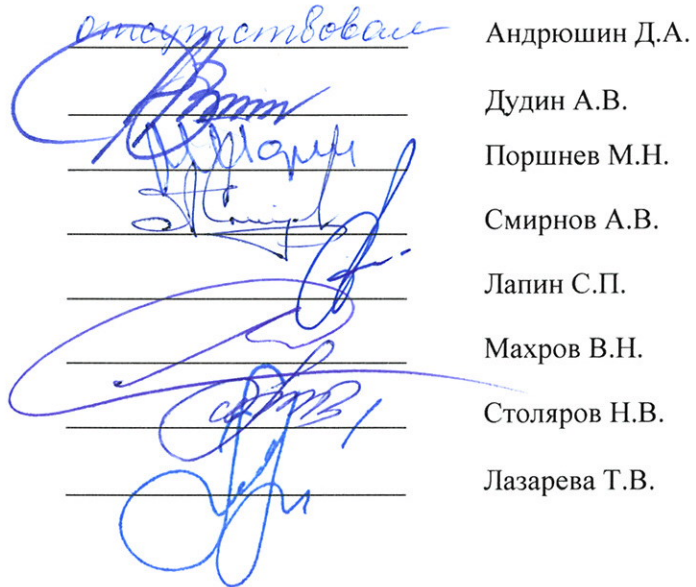 отсутствовал Андрюшин Д.А.
Дудин А.В.
Поршнев М.Н.
Смирнов А.В.
Лапин С.П.
Махров В.Н.
Столяров Н.В.
Лазарева Т.В.